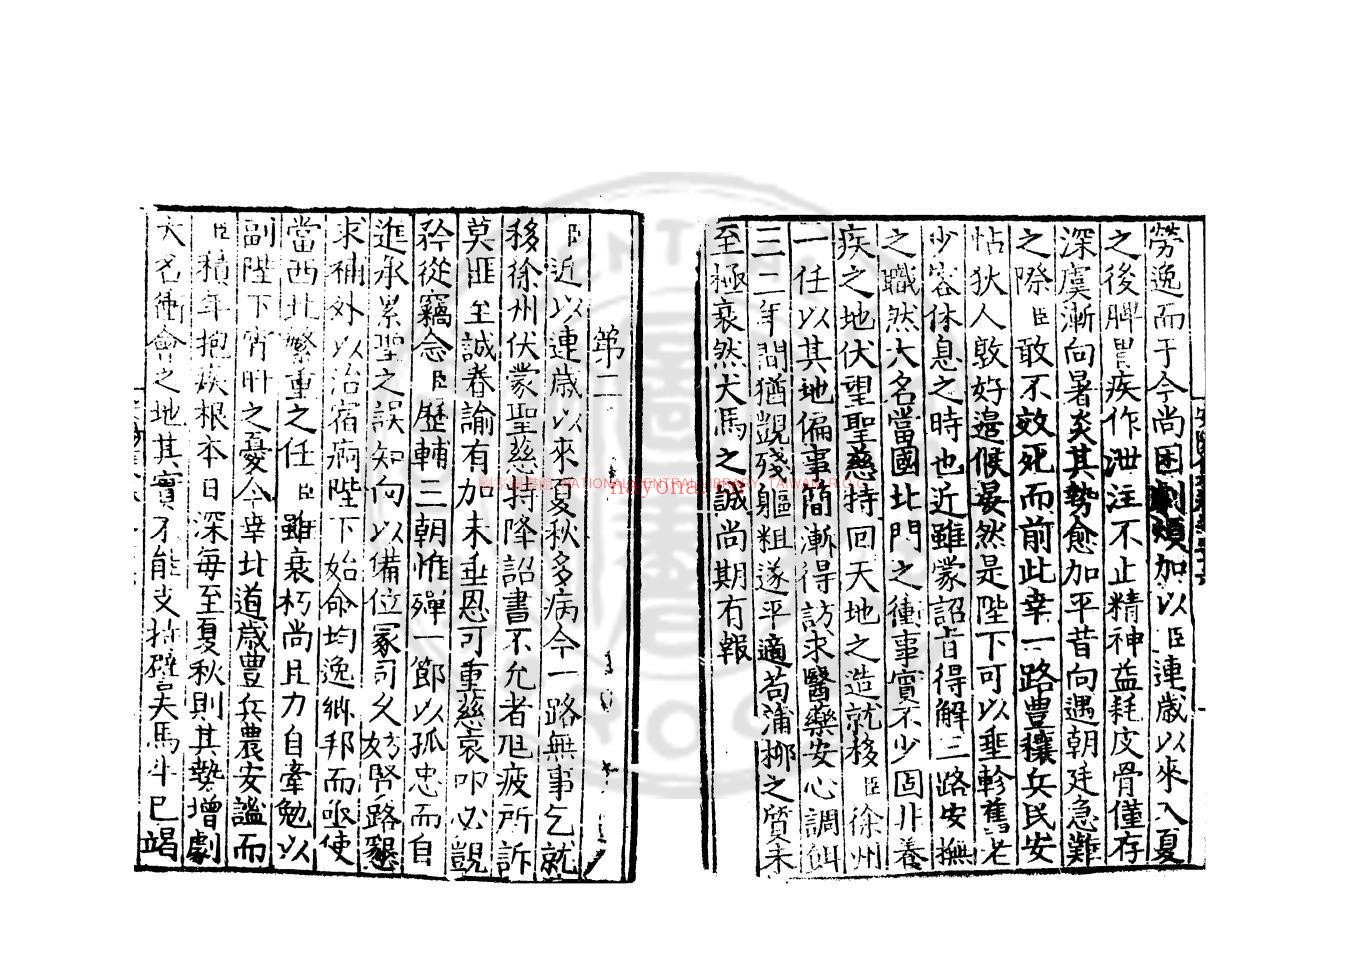 勞逸而于今尚困劇煩加以臣連歲以來入夏
之後脾胃疾作泄注不止精神益耗皮骨僅存
深虞漸向暑炎其勢愈加平昔向遇朝廷急難
之際臣敢不效死而前此幸一路豐穰兵民安
怗狄人敦好邊候晏然是陛下可以垂軫舊老
少容休息之時也近雖蒙詔旨得解三路安撫
之職然大名當國北門之衝事實不少固非養
疾之地伏望聖慈特回天地之造就移臣徐州
一任以其地偏事簡漸得訪求醫藥安心調餌
三二年間猶覬殘軀粗遂平適苟蒲柳之質未
至極衰然犬馬之誠尚期有報
第二
臣近以連歲以來夏秋多病今一路無事乞就
移徐州伏蒙聖慈特降詔書不允者尫疲所訴
莫匪至誠眷諭有加未垂恩可重慈哀叩必覬
矜從竊念臣歷輔三朝惟殫一節以孤忠而自
進承累聖之誤知向以備位冢司久妨賢路懇
求補外以治宿痾陛下始命均逸鄉邦而亟使
當西北繁重之任臣雖衰朽尚且力自牽勉以
副陛下宵旰之憂今幸北道歲豐兵農安謐而
臣積年抱疾根本日深每至夏秋則其勢增劇
大名衝會之地其實不能支持譬言夫馬牛已竭
國家圖書館 NATIONAL CENTRAL LIBRARY, TAIWAN, R.O.C.